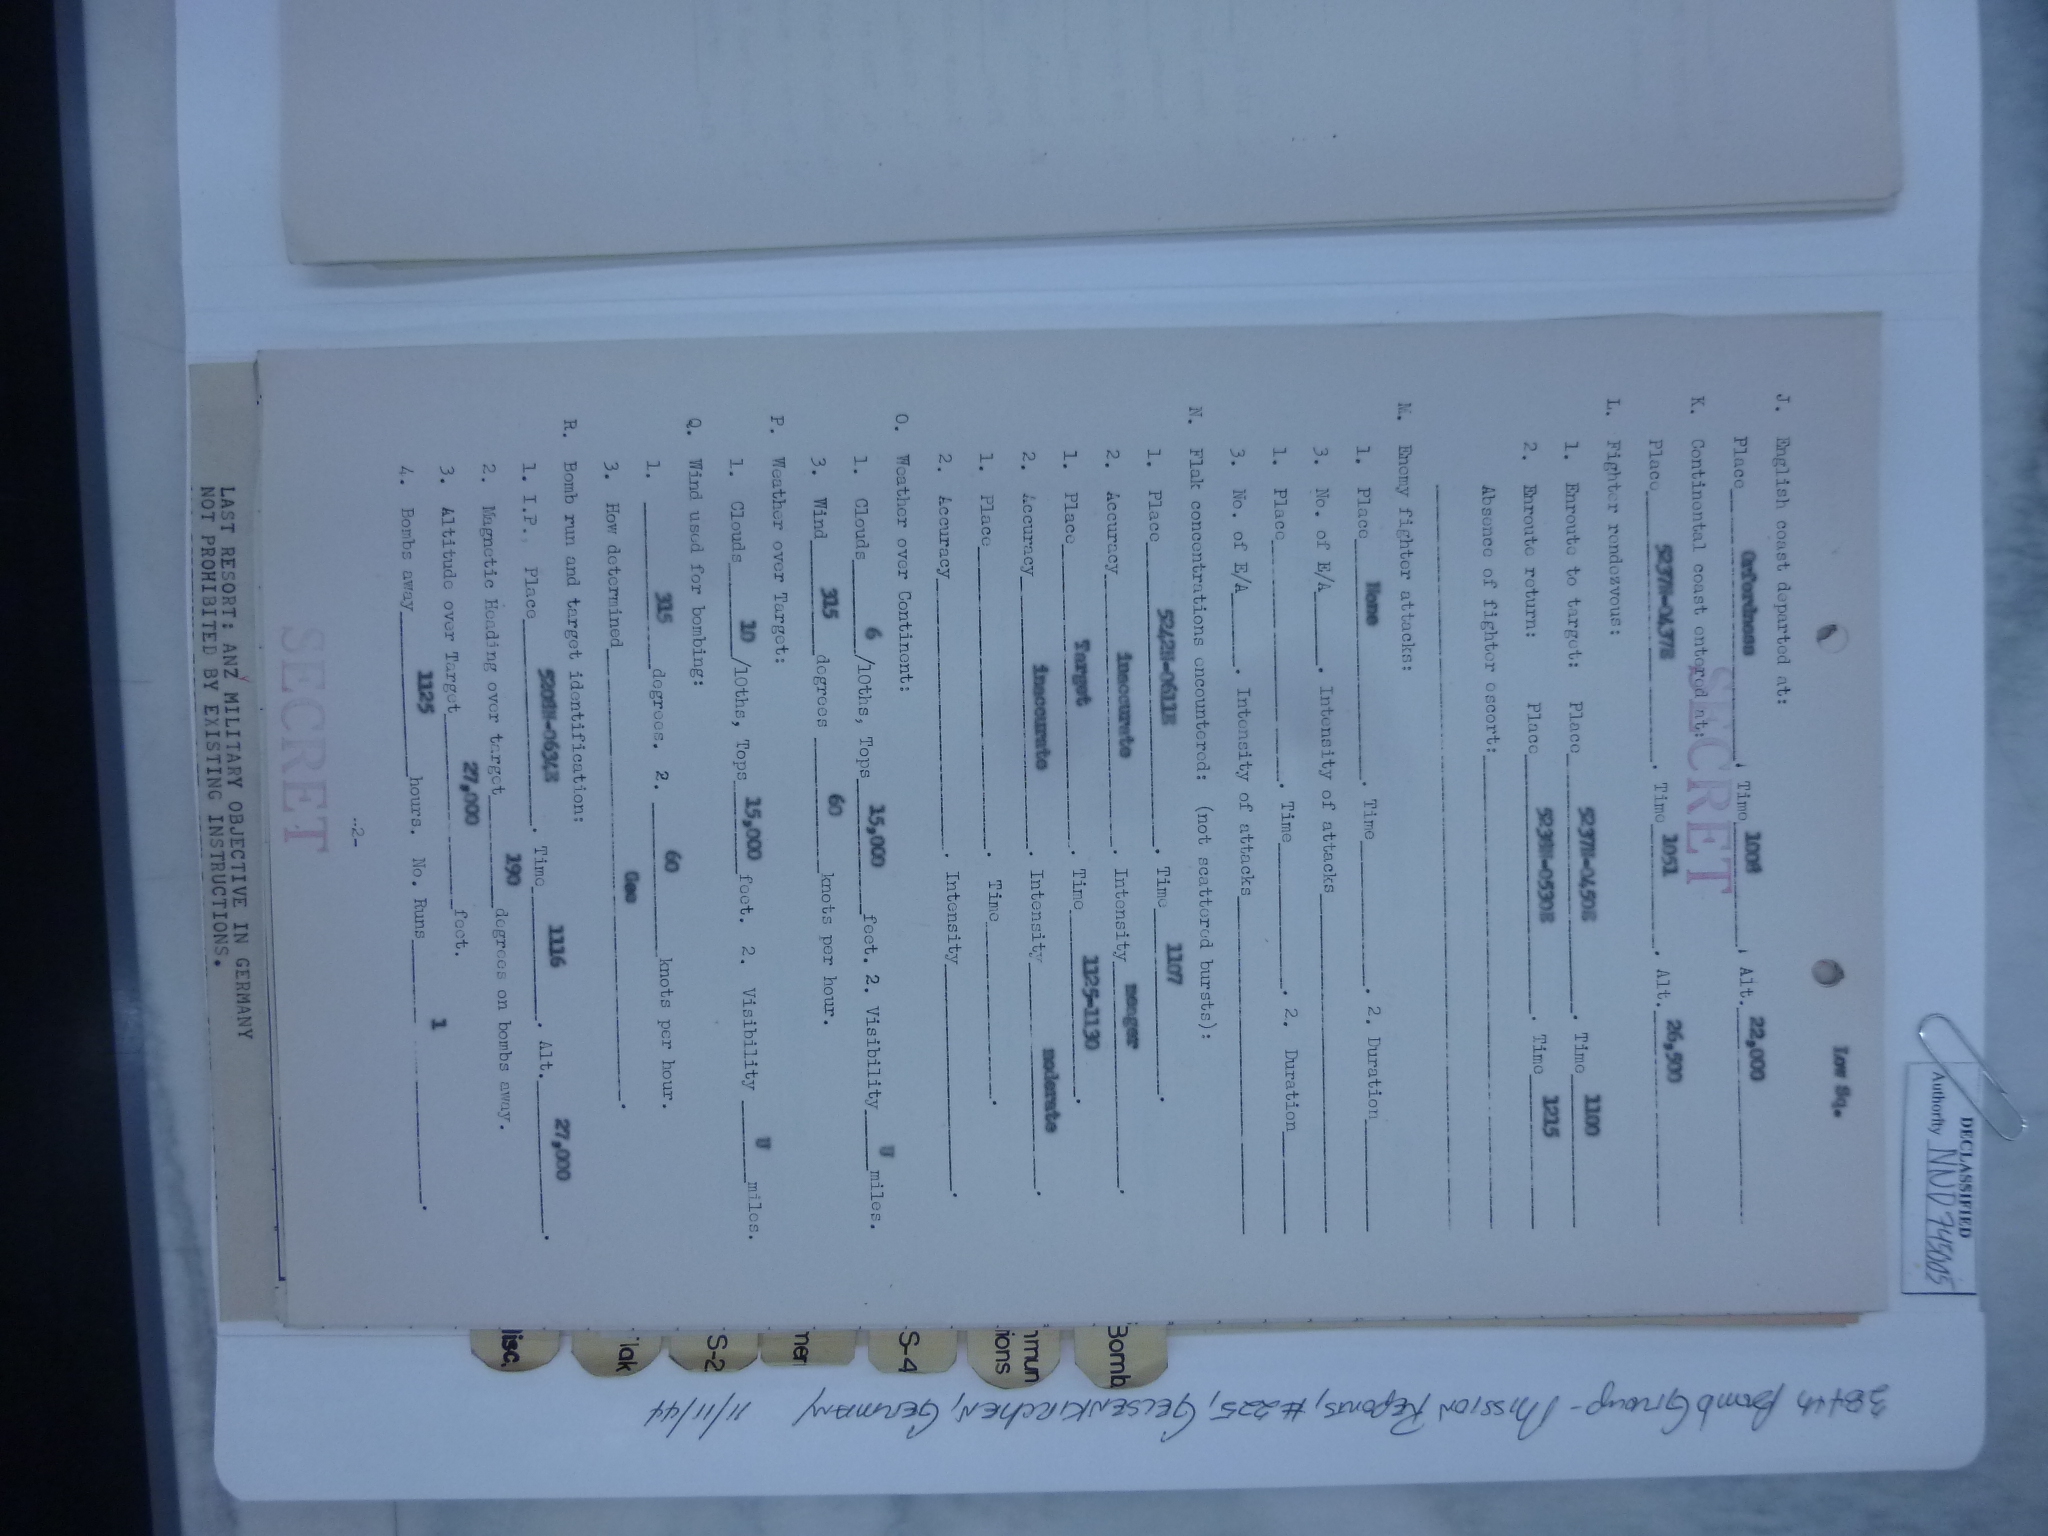 Low Sq.
DECLASSIFIED
Authority NND 745005
SECRET
J. English coast departed at:
Place Orfordness, Time 1009, Alt. 22,000
K. Continental coast entered at:
Place 5237N-0437E. Time 1051. Alt. 26,500
L. Fighter rendezvous:
1. Enroute to target: Place 5237N-0450E. Time 1100
2. Enroute return: Place 5239N-0530E. Time 1215
Absence of fighter escort:
M. Enemy fighter attacks:
1. Place None. Time. 2. Duration
3. No. of E/A. Intensity of attacks
1. Place. Time. 2. Duration
3. No. of E/A. Intensity of attacks
N. Flak concentrations encountered: (not scattered bursts):
1. Place 5242N-0611E. Time 1107.
2. Accuracy inaccurate. Intensity meager.
1. Place Target. Time 1125-1130.
2. Accuracy inaccurate. Intensity moderate.
1. Place. Time.
2. Accuracy. Intensity.
O. Weather over Continent:
1. Clouds 6/10ths, Tops 15,000 feet. 2. Visibility U miles.
3. Wind 315 degrees 60 knots per hour.
P. Weather over Target:
1. Clouds 10/10ths, Tops 15,000 feet. 2. Visibility U miles.
Q. Wind used for bombing:
1. 315 degrees. 2. 60 knots per hour.
3. How determined Gee.
R. Bomb run and target identification:
1. I.P., Place. Time 1116. Alt. 27,000.
2. Magnetic Heading over target 190 degrees on bombs away.
3. Altitude over Target 27,000 feet.
4. Bombs away 1125 hours. No. Runs 1.
-2-
SECRET
LAST RESORT: ANY MILITARY OBJECTIVE IN GERMANY
NOT PROHIBITED BY EXISTING INSTRUCTIONS.
Bomb
mmun
ions
S-4
mer
S-2
lak
lisc.
384th Bomb Group - Mission Reports, #225, GELSENKIRCHEN, GERMANY 11/11/44